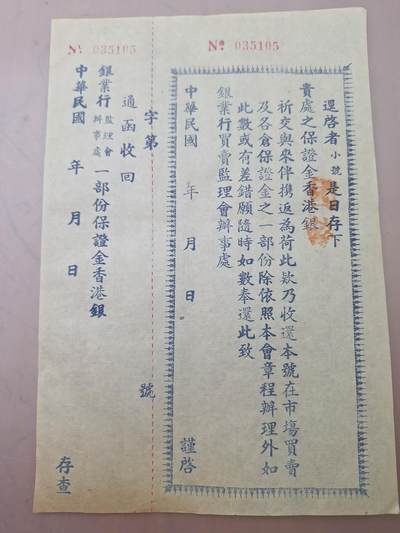 № 035105
逕啓者小號是日存下
貴處之保證金香港銀
祈交與來伴携返為荷此欵乃收還本號在市塲買賣
及各倉保證金之一部份除依照本會章程辦理外如
此數或有差錯願隨時如數奉還此致
銀業行買賣監理會辦事處
中華民國 年 月 日 謹啓
字第 號
№ 035105
通函收回
銀業行監理會辦事處一部份保證金香港銀
中華民國 年 月 日
存查